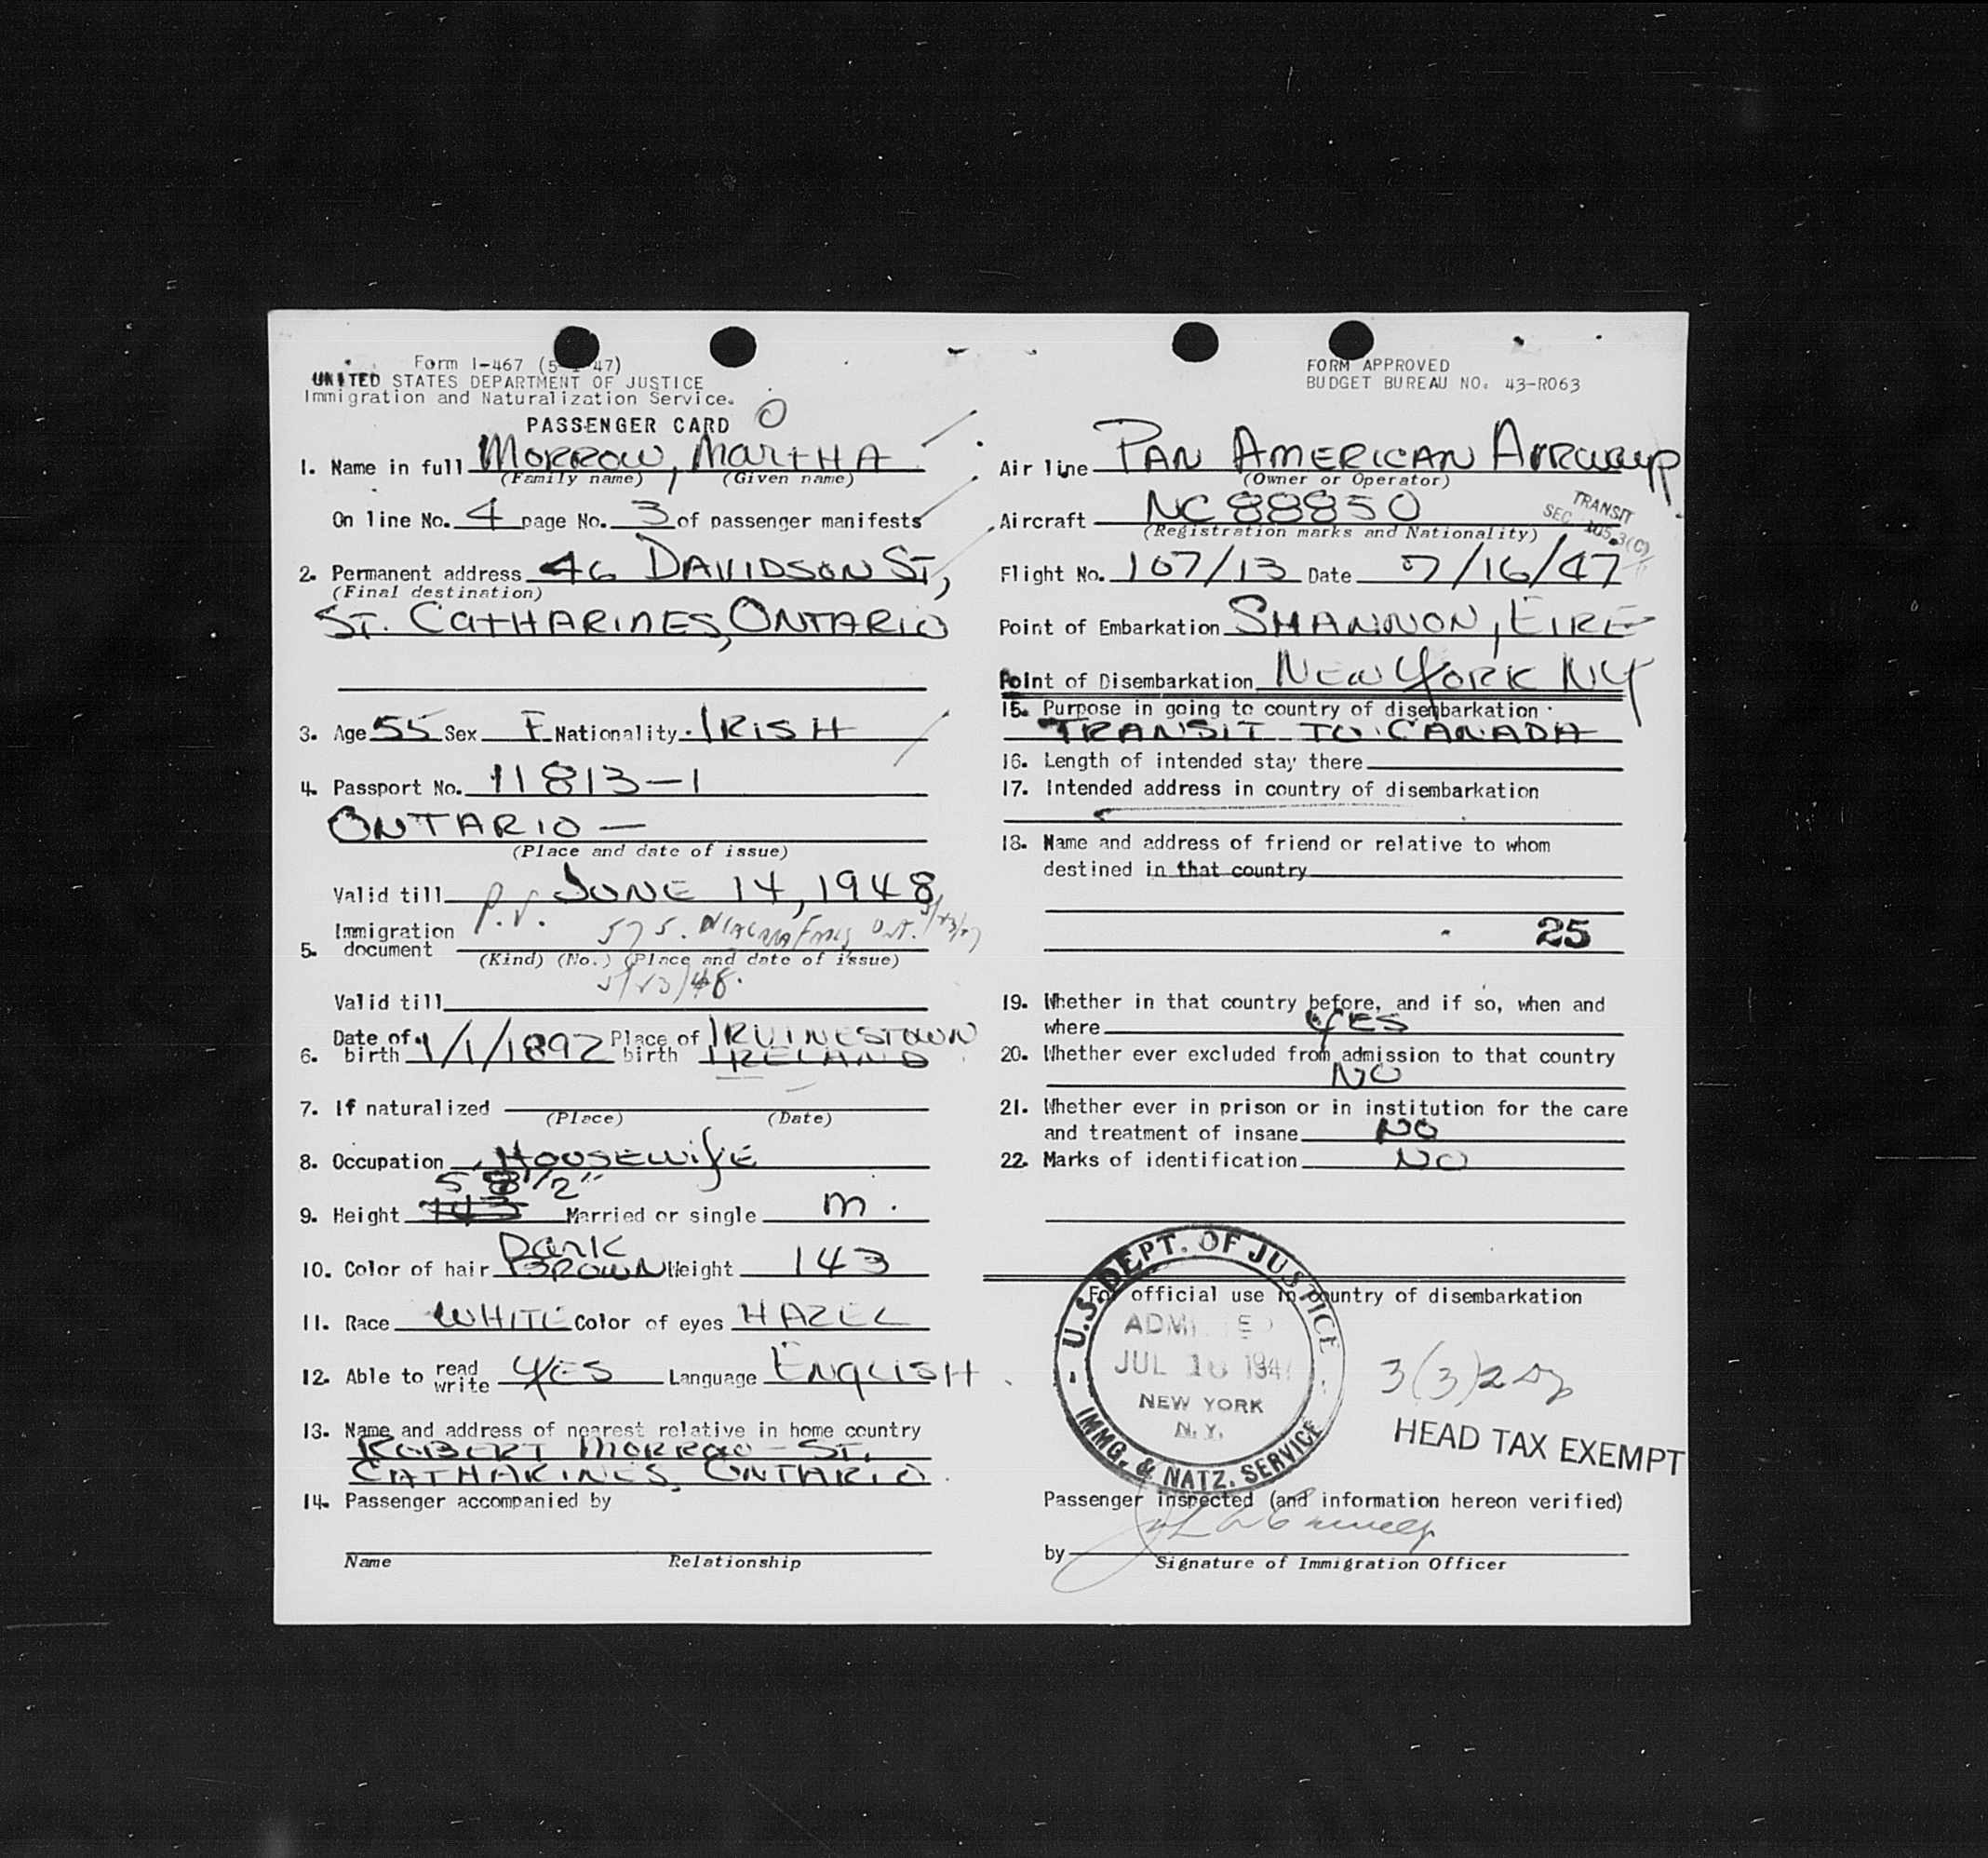 Form I-467 (5-1-47)
UNITED STATES DEPARTMENT OF JUSTICE
Immigration and Naturalization Service.
PASSENGER CARD
1. Name in full MORROW, MARTHA
(Family name) (Given name)
On line No. 4 page No. 3 of passenger manifests
2. Permanent address 46 DAVIDSON ST,
(Final destination)
ST. CATHARINES, ONTARIO
3. Age 55 Sex F Nationality IRISH
4. Passport No. 11813-1
ONTARIO —
(Place and date of issue)
Valid till JUNE 14, 1948
5. Immigration document P.V. 575. NIAGARA FALLS ONT.
(Kind) (No.) (Place and date of issue)
Valid till
6. Date of birth 1/1/1892 Place of birth IRVINESTOWN
IRELAND
7. If naturalized
(Place) (Date)
8. Occupation HOUSEWIFE
5 8 1/2"
9. Height 143 Married or single M.
DARK
10. Color of hair BROWN Weight 143
11. Race WHITE Color of eyes HAZEL
12. Able to read write YES Language ENGLISH
13. Name and address of nearest relative in home country
ROBERT MORROW - ST.
CATHARINES, ONTARIO
14. Passenger accompanied by
Name Relationship
FORM APPROVED
BUDGET BUREAU NO. 43-R063
Air line PAN AMERICAN AIRWAYS
(Owner or Operator)
Aircraft NC 88850
(Registration marks and Nationality)
TRANSIT
SEC 105.3(C)
Flight No. 107/13 Date 7/16/47
Point of Embarkation SHANNON, EIRE
Point of Disembarkation NEW YORK NY
15. Purpose in going to country of disembarkation
TRANSIT TO CANADA
16. Length of intended stay there
17. Intended address in country of disembarkation
18. Name and address of friend or relative to whom
destined in that country
25
19. Whether in that country before, and if so, when and
where YES
20. Whether ever excluded from admission to that country
NO
21. Whether ever in prison or in institution for the care
and treatment of insane NO
22. Marks of identification NO
For official use in country of disembarkation
U.S. DEPT. OF JUSTICE
ADMITTED
JUL 16 1947
NEW YORK
N.Y.
IMMG. & NATZ. SERVICE
3(3)2
HEAD TAX EXEMPT
Passenger inspected (and information hereon verified)
by
Signature of Immigration Officer